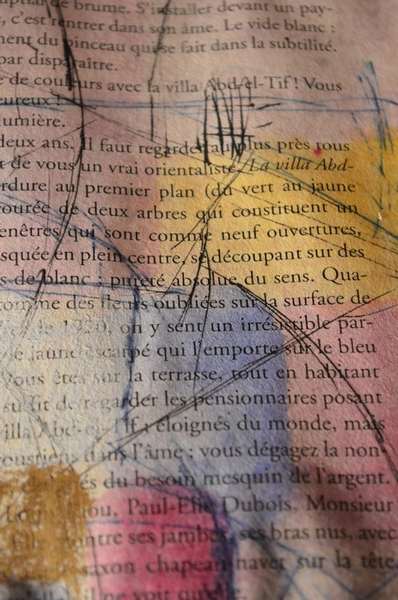 de brume. S'installer devant un pay-
s, c'est rentrer dans son âme. Le vide blanc :
ment du pinceau qui se fait dans la subtilité.
par disparaître.
e de couleurs avec la villa Abd-el-Tif ! Vous
eureux !
umière.
deux ans. Il faut regarder au plus près tous
t de vous un vrai orientaliste. La villa Abd-
rdure au premier plan (du vert au jaune
tourée de deux arbres qui constituent un
enêtres qui sont comme neuf ouvertures,
squée en plein centre, se découpant sur des
s de blanc ; pureté absolue du sens. Qua-
comme des fleurs oubliées sur la surface de
on y sent un irrésistible par-
jaune escarpé qui l'emporte sur le bleu
Vous êtes sur la terrasse, tout en habitant
suffit de regarder les pensionnaires posant
villa Abd-el-Tif ; éloignés du monde, mais
dans l'âme ; vous dégagez la non-
du besoin mesquin de l'argent.
Paul-Elie Dubois. Monsieur
contre ses jambes, ses bras nus, avec
saxon chapeau sur la tête
il ne voit